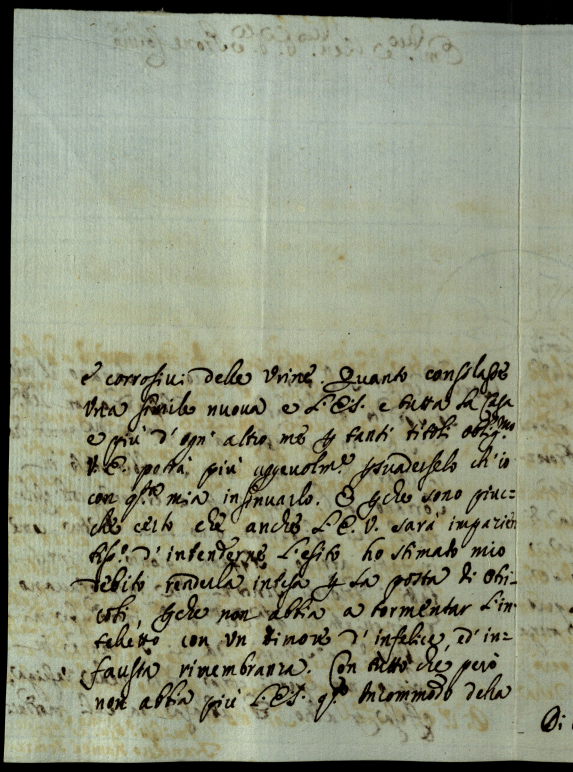 e' corrosivi delle Urine. Quanto consolasse
Una simile nuova e L.E.S. e tutta la Casa
e più d'ogn' altro me p tanti titoli oblig.mo
V.E. potrà più agevolm.e psuaderselo ch' io
con q.ta mia insinuarlo. E pche sono piuc=
che certo che anche L.E.V. sarà impazien
tiss.a d' intenderne l'esito ho stimato mio
debito renderla intesa p la posta di Otri=
coli, pche non abbia a tormentar l'in=
telletto con un timore d' infelice, ed in=
fausta rimembranza. Con tutto che però
non abbia più L.E.S. q.o incommodo della
Di